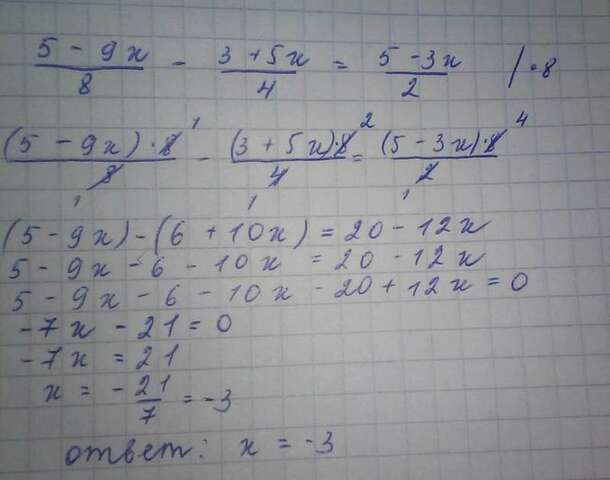 (5 - 9x)/8 - (3 + 5x)/4 = (5 - 3x)/2 | · 8
(5 - 9x) · 8 ¹/8 ₁ - (3 + 5x) · 8 ²/4 ₁ = (5 - 3x) · 8 ⁴/2 ₁
(5 - 9x) - (6 + 10x) = 20 - 12x
5 - 9x - 6 - 10x = 20 - 12x
5 - 9x - 6 - 10x - 20 + 12x = 0
-7x - 21 = 0
-7x = 21
x = - 21/7 = -3
ответ: x = -3